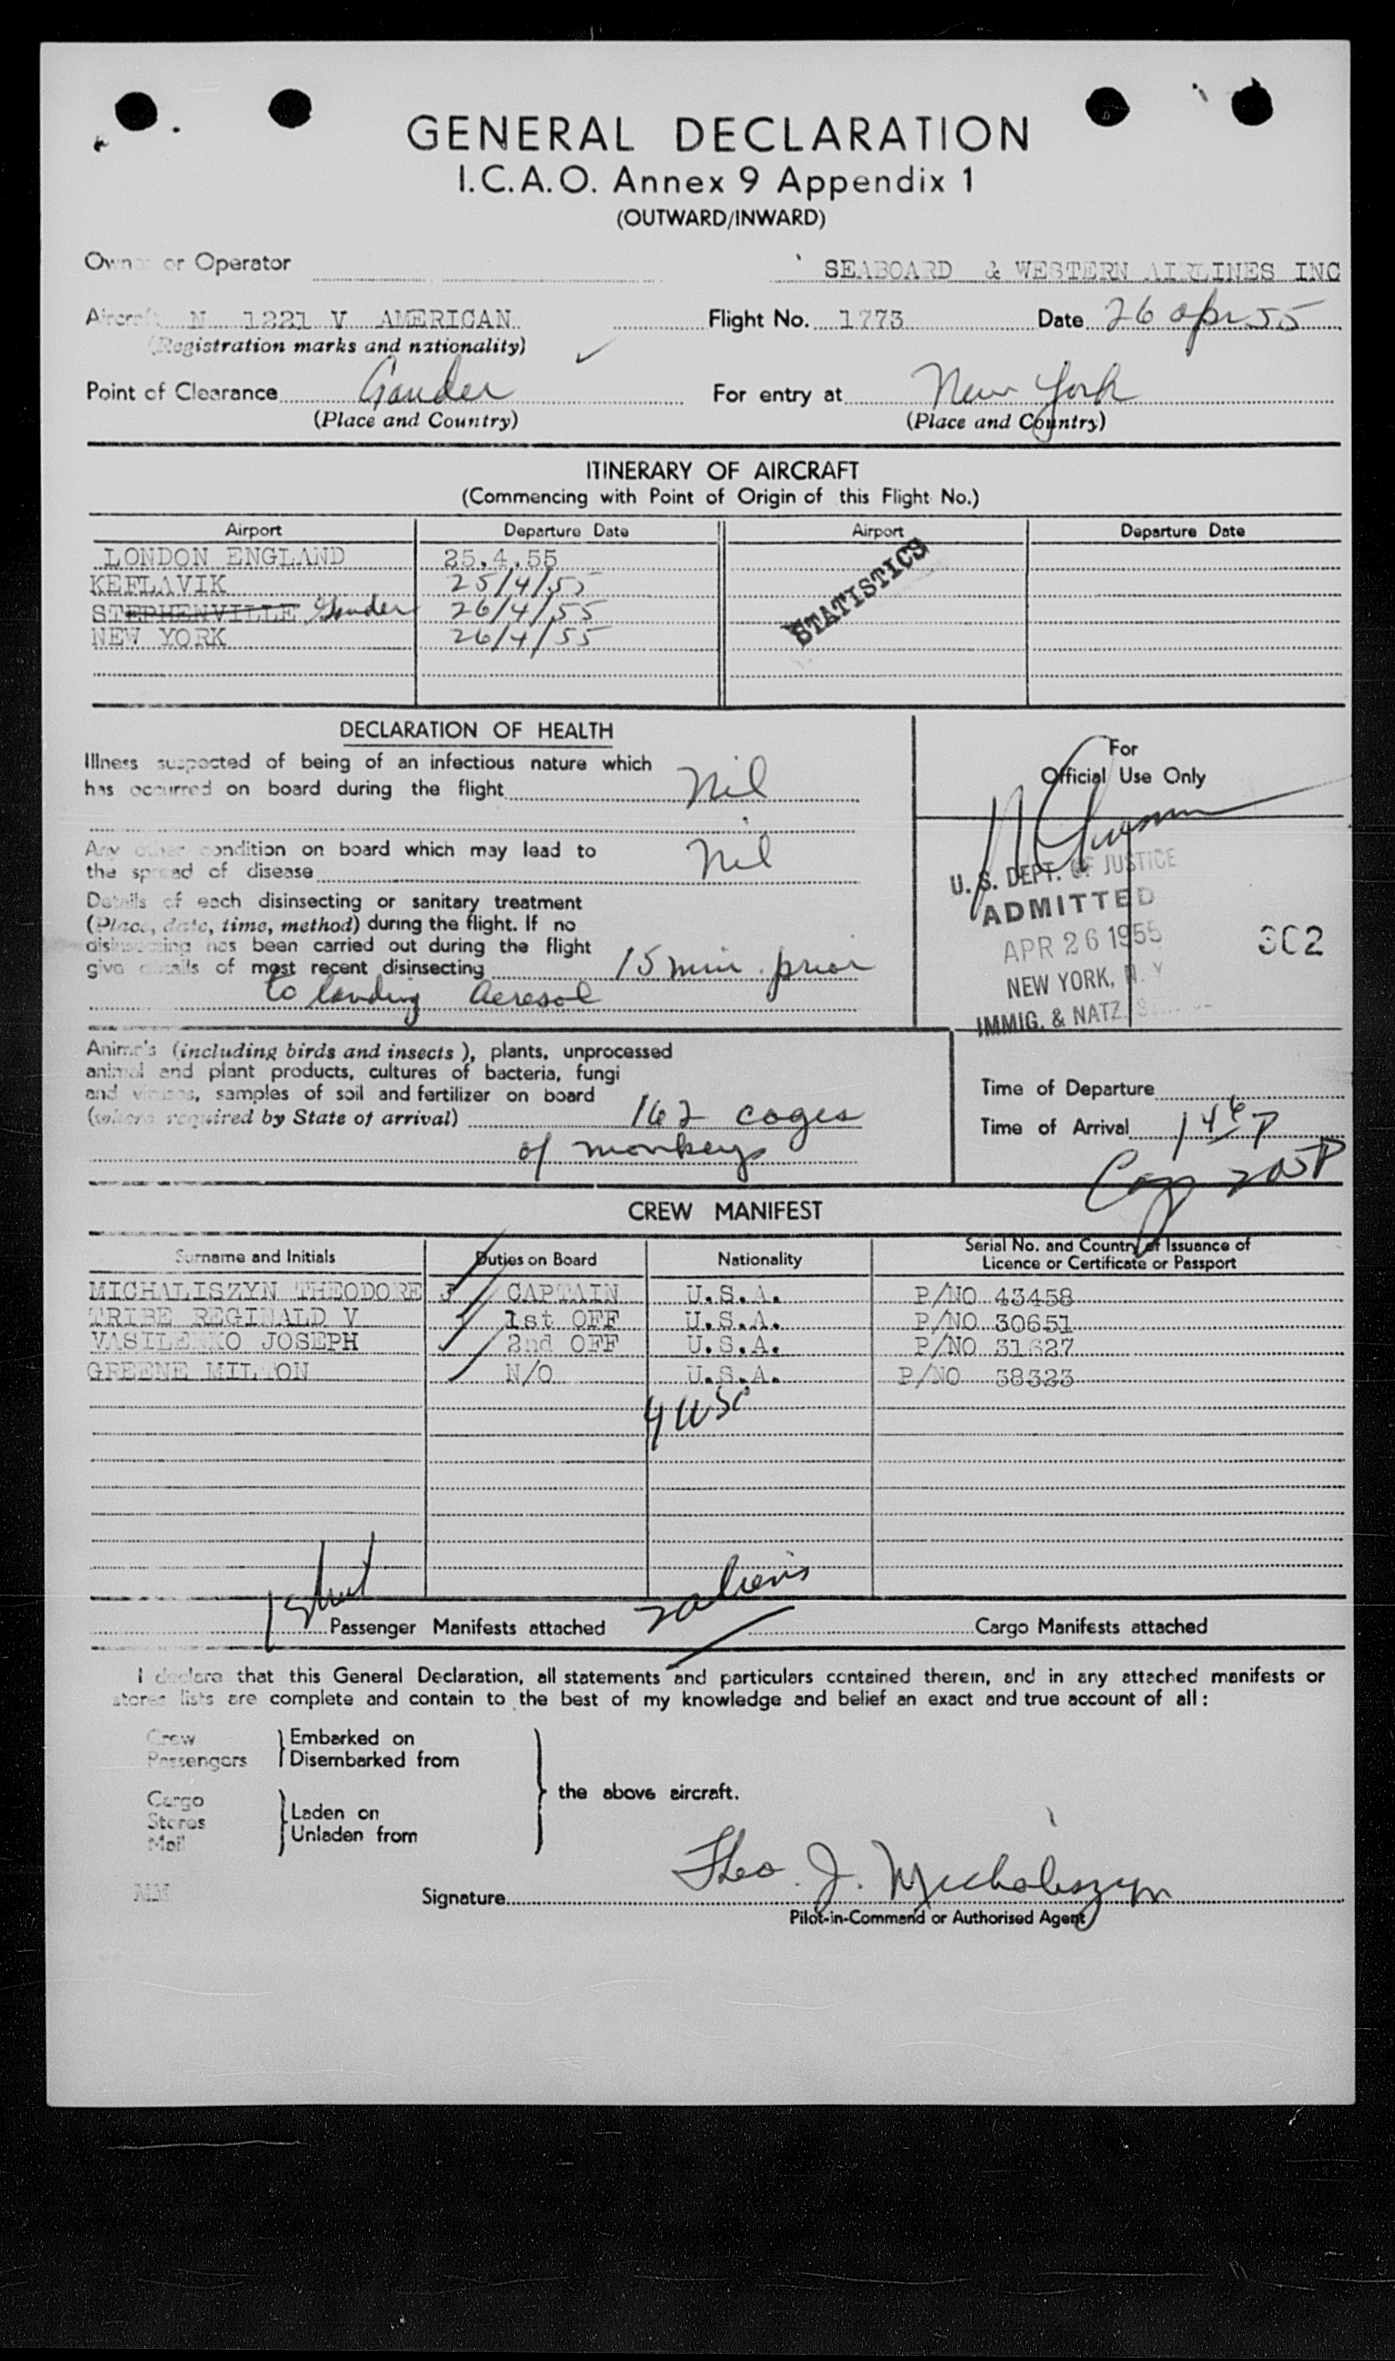 GENERAL DECLARATION
I.C.A.O. Annex 9 Appendix 1
(OUTWARD/INWARD)
Owner or Operator SEABOARD & WESTERN AIRLINES INC
Aircraft N 1221 V AMERICAN Flight No. 1773 Date 26 Apr 55
(Registration marks and nationality)
Point of Clearance Gander For entry at New York
(Place and Country) (Place and Country)
ITINERARY OF AIRCRAFT
(Commencing with Point of Origin of this Flight No.)
Airport Departure Date Airport Departure Date
LONDON ENGLAND 25.4.55
KEFLAVIK 25/4/55
STEPHENVILLE Gander 26/4/55
NEW YORK 26/4/55
STATISTICS
DECLARATION OF HEALTH
Illness suspected of being of an infectious nature which
has occurred on board during the flight Nil
Any other condition on board which may lead to
the spread of disease Nil
Details of each disinsecting or sanitary treatment
(Place, date, time, method) during the flight. If no
disinsecting has been carried out during the flight
give details of most recent disinsecting 15 min. prior
to landing Aeresol
For
Official Use Only
U.S. DEPT. OF JUSTICE
ADMITTED
APR 26 1955
NEW YORK, N.Y
IMMIG. & NATZ.
302
Animals (including birds and insects), plants, unprocessed
animal and plant products, cultures of bacteria, fungi
and viruses, samples of soil and fertilizer on board
(where required by State of arrival) 162 cages
of monkeys
Time of Departure
Time of Arrival 1 46 P
205P
CREW MANIFEST
Surname and Initials Duties on Board Nationality Serial No. and Country of Issuance of
Licence or Certificate or Passport
MICHALISZYN THEODORE J CAPTAIN U.S.A. P/NO 43458
TRIBE REGINALD V 1st OFF U.S.A. P/NO 30651
VASILENKO JOSEPH 2nd OFF U.S.A. P/NO 31627
GREENE MILTON N/O U.S.A. P/NO 38323
4 USC
2 aliens
Passenger Manifests attached Cargo Manifests attached
I declare that this General Declaration, all statements and particulars contained therein, and in any attached manifests or
stores lists are complete and contain to the best of my knowledge and belief an exact and true account of all:
Crew Embarked on
Passengers Disembarked from
the above aircraft.
Cargo
Stores Laden on
Mail Unladen from
Signature Theo. J. Michaliszyn
Pilot-in-Command or Authorised Agent